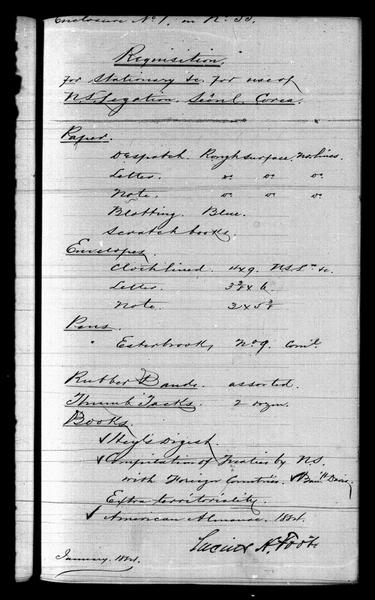 Enclosure No 1. in No 53.
Requisition.
for Stationery &c. for use of
U.S. Legation. Séoul. Corea.
Paper.
Despatch. Rough surface, no lines.
Letter. " " "
Note. " " "
Blotting. Blue.
Scratch books.
Envelopes.
Cloth lined. 4x9. U.S.L &c.
Letter. x 6.
Note.
Pens.
" Esterbrook, No 9.
Rubber Bands. assorted.
Thumb Tacks. 2 dozn.
Books.
✓ Digest.
✓ Compilation of Treaties by U.S.
with Foreign Countries. ✓ Davis.
Extra territoriality.
✓ American Almanac. 1884.
Lucius H. Foote
January. 1884.